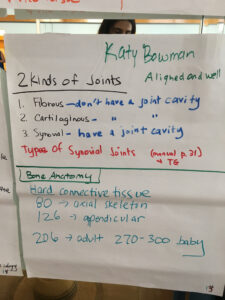 Katy Bowman
Aligned and well
2 Kinds of Joints
1. Fibrous - don't have a joint cavity
2. Cartilaginous - " "
3. Synovial - have a joint cavity
Types of Synovial Joints (manual p. 31)
→ TG
Bone Anatomy
Hard connective tissue
80 → axial skeleton
126 → apendicular
206 → adult 270-300 baby